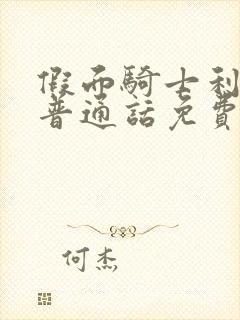 假面騎士利
普通話免費
何杰